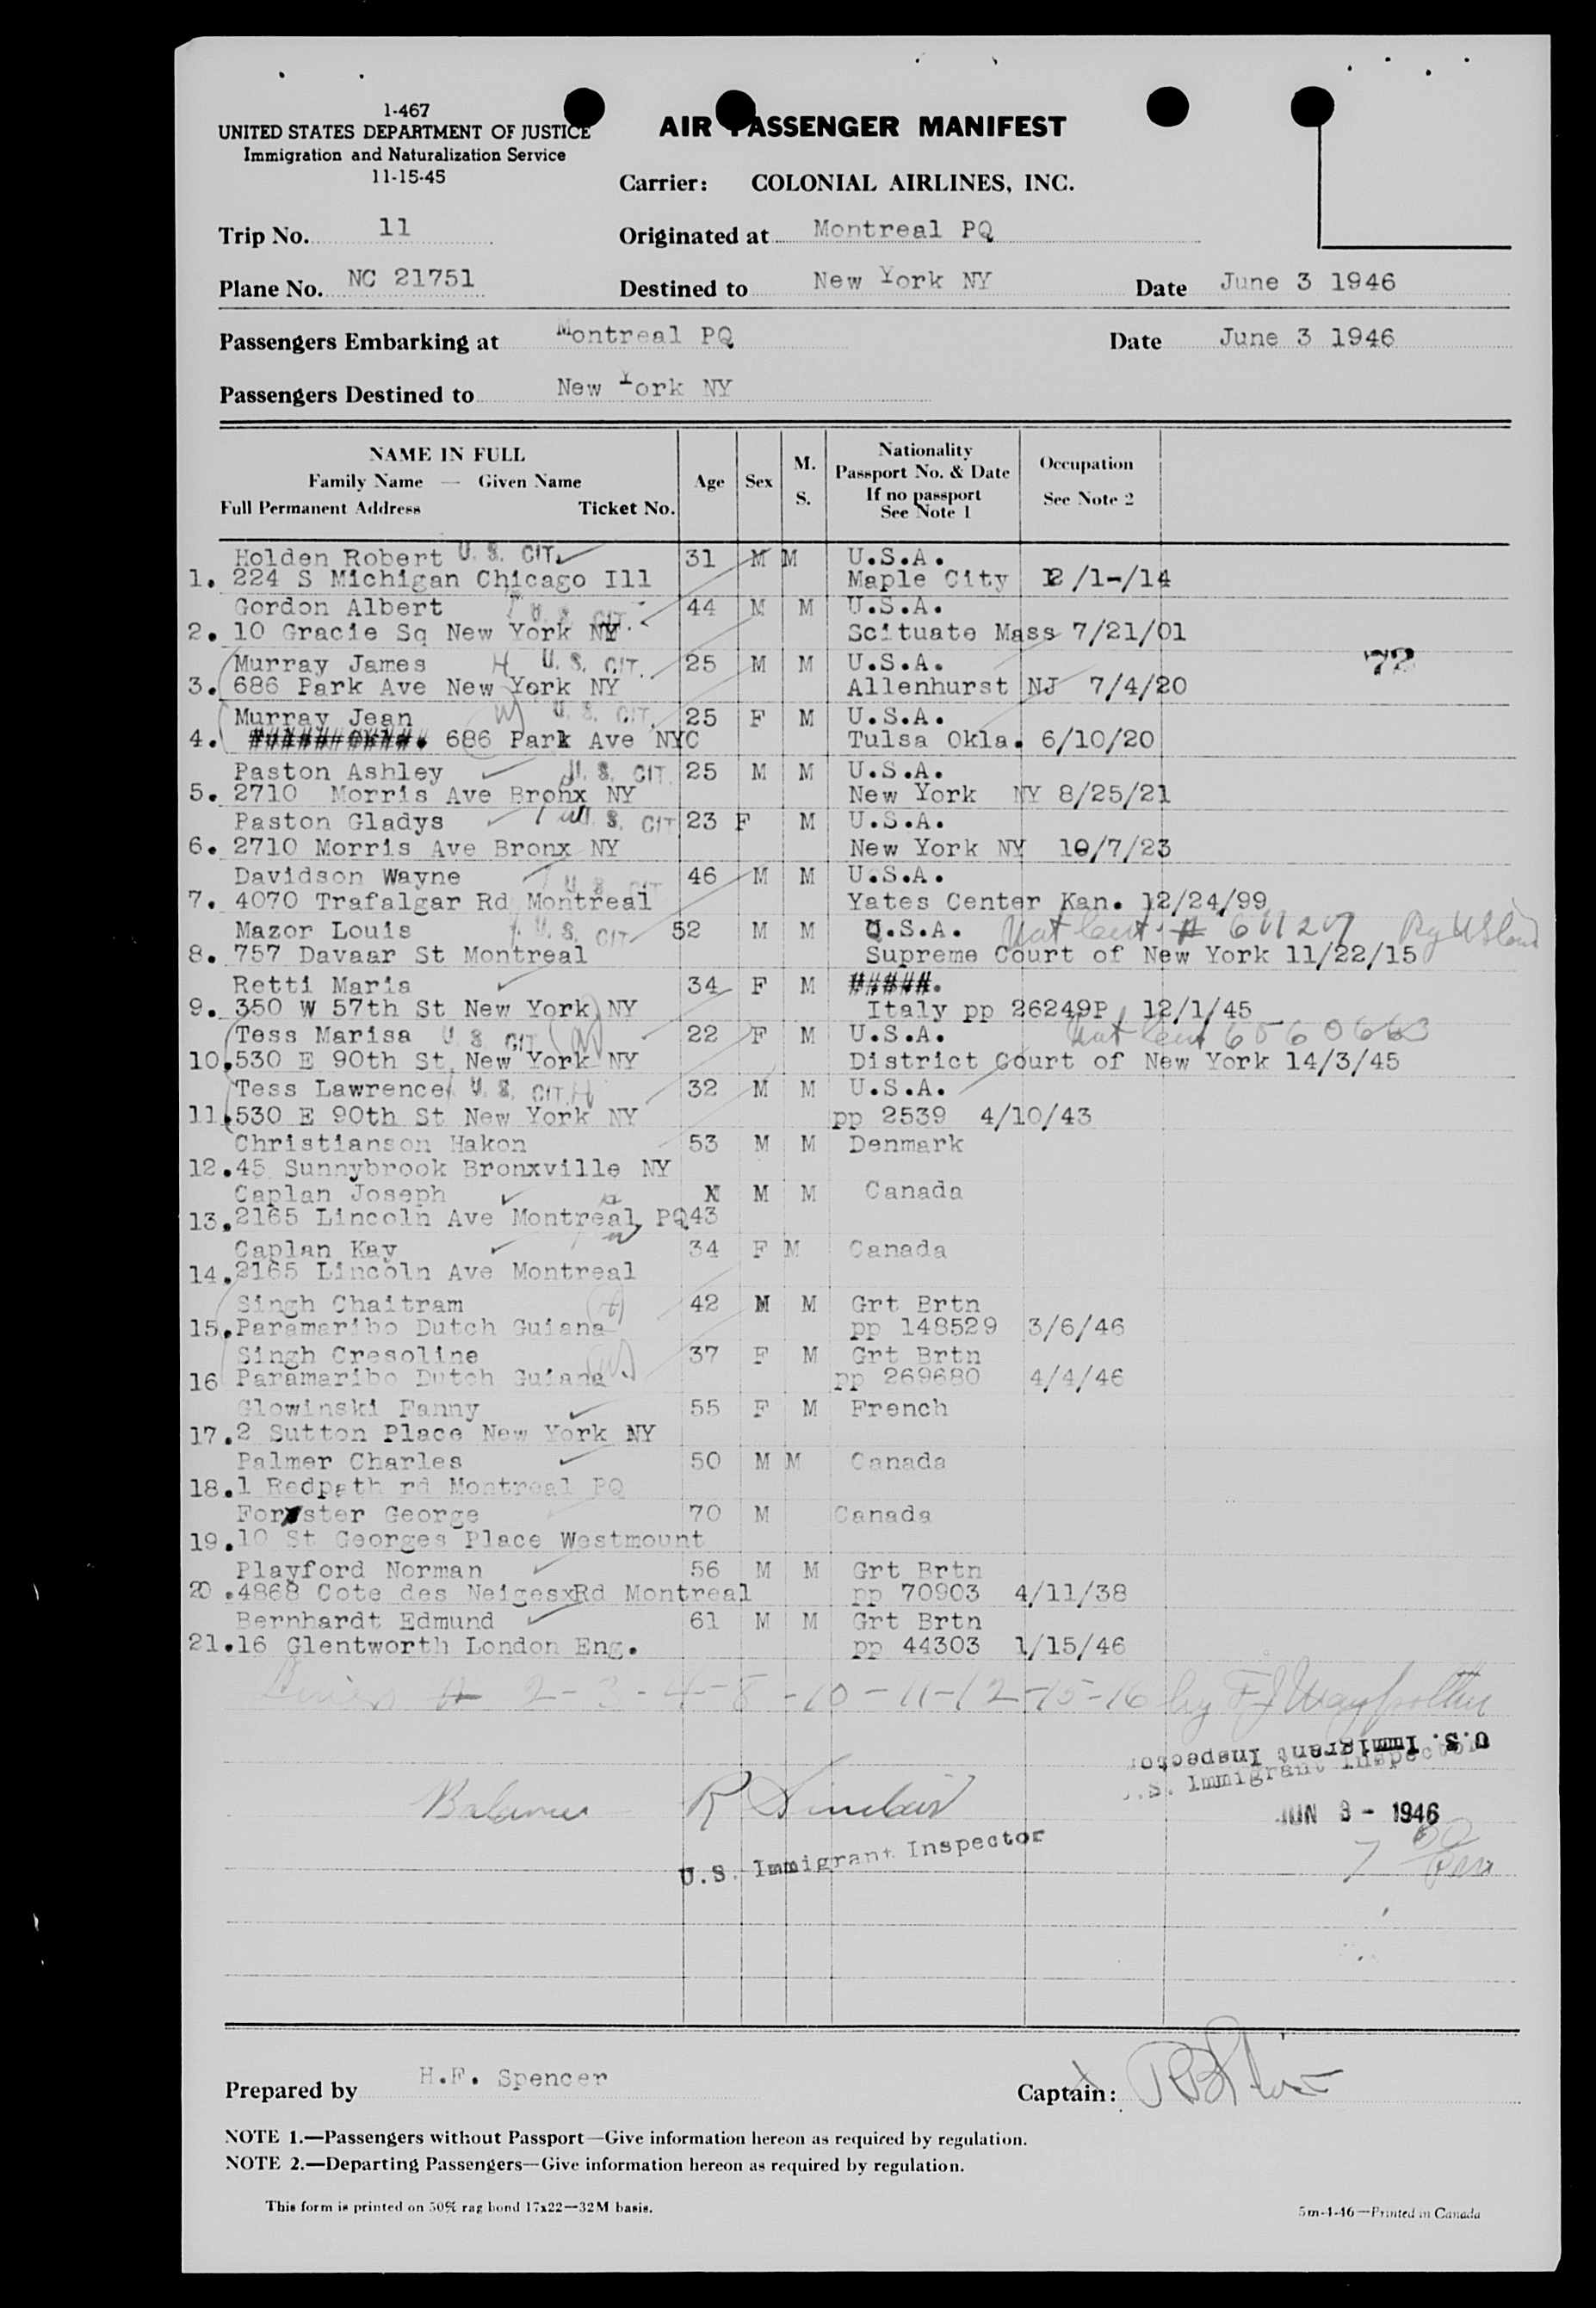 1-467
UNITED STATES DEPARTMENT OF JUSTICE
Immigration and Naturalization Service
11-15-45
AIR PASSENGER MANIFEST
Carrier: COLONIAL AIRLINES, INC.
Trip No. 11 Originated at Montreal PQ
Plane No. NC 21751 Destined to New York NY Date June 3 1946
Passengers Embarking at Montreal PQ Date June 3 1946
Passengers Destined to New York NY
NAME IN FULL
Family Name — Given Name
Full Permanent Address Ticket No.
Age Sex M. S.
Nationality
Passport No. & Date
If no passport
See Note 1
Occupation
See Note 2
Holden Robert U. S. CIT. 31 M M U.S.A.
1. 224 S Michigan Chicago Ill Maple City 12/1-/14
Gordon Albert U. S. CIT. 44 M M U.S.A.
2. 10 Gracie Sq New York NY. Scituate Mass 7/21/01
Murray James H U. S. CIT. 25 M M U.S.A. 72
3. 686 Park Ave New York NY Allenhurst NJ 7/4/20
Murray Jean W U. S. CIT. 25 F M U.S.A.
4. ##########. 686 Park Ave NYC Tulsa Okla. 6/10/20
Paston Ashley U. S. CIT. 25 M M U.S.A.
5. 2710 Morris Ave Bronx NY New York NY 8/25/21
Paston Gladys U. S. CIT 23 F M U.S.A.
6. 2710 Morris Ave Bronx NY New York NY 10/7/23
Davidson Wayne U. S. CIT 46 M M U.S.A.
7. 4070 Trafalgar Rd Montreal Yates Center Kan. 12/24/99
Mazor Louis U. S. CIT 52 M M U.S.A. Nat Cert. #
8. 757 Davaar St Montreal Supreme Court of New York 11/22/15
Retti Maria 34 F M #####.
9. 350 W 57th St New York NY Italy pp 26249P 12/1/45
Tess Marisa U S CIT (W) 22 F M U.S.A. Nat Cert
10.530 E 90th St New York NY District Court of New York 14/3/45
Tess Lawrence U. S. CIT. H 32 M M U.S.A.
11.530 E 90th St New York NY pp 2539 4/10/43
Christianson Hakon 53 M M Denmark
12.45 Sunnybrook Bronxville NY
Caplan Joseph M M Canada
13.2165 Lincoln Ave Montreal PQ 43
Caplan Kay 34 F M Canada
14.2165 Lincoln Ave Montreal
Singh Chaitram (H) 42 M M Grt Brtn
15.Paramaribo Dutch Guiana pp 148529 3/6/46
Singh Cresoline (W) 37 F M Grt Brtn
16 Paramaribo Dutch Guiana pp 269680 4/4/46
Glowinski Fanny 55 F M French
17.2 Sutton Place New York NY
Palmer Charles 50 M M Canada
18.1 Redpath rd Montreal PQ
Forster George 70 M Canada
19.10 St Georges Place Westmount
Playford Norman 56 M M Grt Brtn
20.4868 Cote des NeigesxRd Montreal pp 70903 4/11/38
Bernhardt Edmund 61 M M Grt Brtn
21.16 Glentworth London Eng. pp 44303 1/15/46
2-3-4-8-10-11-12-15-16 by
U.S. Immigrant Inspector
U.S. Immigrant Inspector
Balance R Sinclair
JUN 3 - 1946
U.S. Immigrant Inspector
Prepared by H.F. Spencer Captain:
NOTE 1.—Passengers without Passport—Give information hereon as required by regulation.
NOTE 2.—Departing Passengers—Give information hereon as required by regulation.
This form is printed on 50% rag bond 17x22—32M basis.
5m-4-46—Printed in Canada